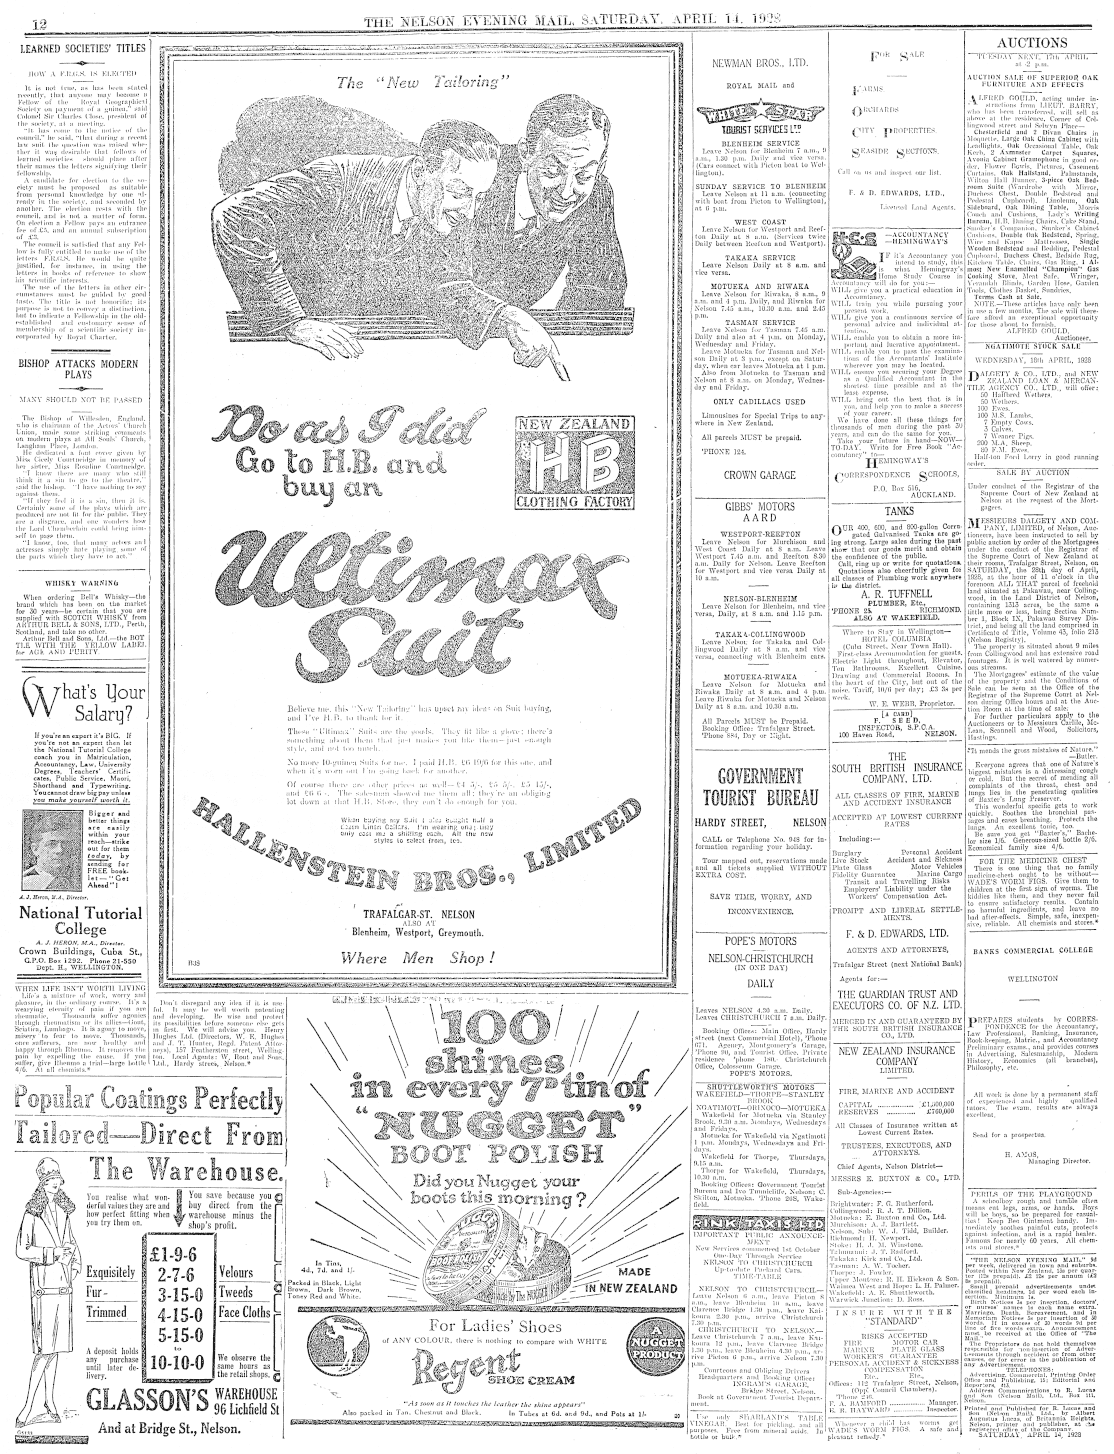 12
THE NELSON EVENING MAIL, SATURDAY, APRIL 14, 1928
LEARNED SOCIETIES' TITLES
HOW A F.R.G.S. IS ELECTED
It is not true, as has been stated
recently, that anyone may become a
Fellow of the Royal Geographical
Society on payment of a guinea," said
Colonel Sir Charles Close, president of
the society, at a meeting.
"It has come to the notice of the
council," he said, "that during a recent
law suit the question was raised whe-
ther it was desirable that fellows of
learned societies should place after
their names the letters signifying their
fellowship.
A candidate for election to the so-
ciety must be proposed as suitable
from personal knowledge by one al-
ready in the society, and seconded by
another. The election rests with the
council, and is not a matter of form.
On election a Fellow pays an entrance
fee of £5, and an annual subscription
of £3.
The council is satisfied that any Fel-
low is fully entitled to make use of the
letters F.R.G.S. He would be quite
justified, for instance, in using the
letters in books of reference to show
his scientific interests.
The use of the letters in other cir-
cumstances must be guided by good
taste. The title is not honorific; its
purpose is not to convey a distinction,
but to indicate a Fellowship in the old-
established and customary sense of
membership of a scientific society in-
corporated by Royal Charter.
BISHOP ATTACKS MODERN
PLAYS
MANY SHOULD NOT BE PASSED
The Bishop of Willesden, England,
who is chairman of the Actors' Church
Union, made some striking comments
on modern plays at All Souls' Church,
Langham Place, London.
He dedicated a font cover given by
Miss Cicely Courtneidge in memory of
her sister, Miss Rosaline Courtneidge.
"I know there are many who still
think it a sin to go to the theatre,"
said the bishop. "I have nothing to say
against them.
"If they feel it is a sin, then it is.
Certainly some of the plays which are
produced are not fit for the public. They
are a disgrace, and one wonders how
the Lord Chamberlain could bring him-
self to pass them.
"I know, too, that many actors and
actresses simply hate playing some of
the parts which they have to act."
WHISKY WARNING
When ordering Bell's Whisky—the
brand which has been on the market
for 30 years—be certain that you are
supplied with SCOTCH WHISKY from
ARTHUR BELL & SONS, LTD., Perth,
Scotland, and take no other.
Arthur Bell and Sons, Ltd.—the BOT
TLE WITH THE YELLOW LABEL
for AGE AND PURITY
What's Your
Salary?
If you're an expert it's BIG. If
you're not an expert then let
the National Tutorial College
coach you in Matriculation,
Accountancy, Law, University
Degrees, Teachers' Certifi-
cates, Public Service, Maori,
Shorthand and Typewriting.
You cannot draw big pay unless
you make yourself worth it.
Bigger and
better things
are easily
within your
reach—strike
out for them
today, by
sending for
FREE book-
let—"Get
Ahead"!
A. J. Heron, M.A., Director.
National Tutorial
College
A. J. HERON, M.A., Director.
Crown Buildings, Cuba St.,
G.P.O. Box 1292. Phone 21-550
Dept. H., WELLINGTON.
WHEN LIFE ISN'T WORTH LIVING
Life's a mixture of work, worry and
pleasure, in the ordinary course. It's a
wearying eternity of pain if you are
rheumatic. Thousands suffer agonies
through rheumatism or its allies—Gout,
Sciatica, Lumbago. It is agony to move,
misery to four to move. Thousands,
once sufferers, are now healthy and
happy through Rheumo. It removes the
pain by expelling the cause. If you
suffer, give Rheumo a trial—large bottle
4/6. At all chemists.*
Don't disregard any idea if it is use-
ful. It may be well worth patenting
and developing. Be wise and protect
its possibilities before someone else gets
in first. We will advise you. Henry
Hughes Ltd. (Directors, W. E. Hughes
and J. T. Hunter, Regd. Patent Attor-
neys), 157 Featherston street, Welling-
ton. Local Agents: W. Rout and Sons,
Ltd., Hardy street, Nelson.*
Popular Coatings Perfectly
Tailored—Direct From
The Warehouse.
You realise what won-
derful values they are and
how perfect fitting when
you try them on.
You save because you
buy direct from the
warehouse minus the
shop's profit.
Exquisitely
Fur-
Trimmed
£1-9-6
2-7-6
3-15-0
4-15-0
5-15-0
to
10-10-0
Velours
Tweeds
Face Cloths
A deposit holds
any purchase
until later de-
livery.
We observe the
same hours as
the retail shops.
GLASSON'S WAREHOUSE
96 Lichfield St
And at Bridge St., Nelson.
The "New Tailoring"
Do as I did
Go to H.B. and
buy an
NEW ZEALAND
HB
CLOTHING FACTORY
Ultimax
Suit
Believe me, this "New Tailoring" has upset my ideas on Suit buying,
and I've H.B. to thank for it.
These "Ultimax" Suits are the goods. They fit like a glove; there's
something about them that just makes you like them—just enough
style, and not too much.
No more 10-guinea Suits for me. I paid H.B. £6 19/6 for this one, and
when it's worn out I'm going back for another.
Of course there are other prices as well—£4 5/-, £5 5/-, £5 15/-,
and £6 6/-. The salesman showed me them all; they're an obliging
lot down at that H.B. Store, they can't do enough for you.
When buying my Suit I also bought half a
dozen Linen Collars. I'm wearing one; they
only cost me a shilling each. All the new
styles to select from, too.
HALLENSTEIN BROS., LIMITED
TRAFALGAR-ST. NELSON
ALSO AT
Blenheim, Westport, Greymouth.
Where Men Shop!
100
shines
in every 7D tin of
"NUGGET"
BOOT POLISH
Did you Nugget your
boots this morning?
In Tins,
4d., 7d. and 1/-
Packed in Black, Light
Brown, Dark Brown,
Toney Red and White.
MADE
IN NEW ZEALAND
For Ladies' Shoes
of ANY COLOUR, there is nothing to compare with WHITE
Regent
SHOE CREAM
A NUGGET PRODUCT
"As soon as it touches the leather the shine appears"
Also packed in Tan, Chestnut and Black. In Tubes at 6d. and 9d., and Pots at 1/-
NEWMAN BROS., LTD.
ROYAL MAIL and
WHITE STAR
TOURIST SERVICES LTD
BLENHEIM SERVICE
Leave Nelson for Blenheim 7 a.m., 9
a.m., 1.30 p.m. Daily and vice versa.
(Cars connect with Picton boat to Wel-
lington).
SUNDAY SERVICE TO BLENHEIM
Leave Nelson at 11 a.m. (connecting
with boat from Picton to Wellington),
at 6 p.m.
WEST COAST
Leave Nelson for Westport and Reef-
ton Daily at 8 a.m. (Services twice
Daily between Reefton and Westport).
TAKAKA SERVICE
Leave Nelson Daily at 8 a.m. and
vice versa.
MOTUEKA AND RIWAKA
Leave Nelson for Motueka 8 a.m., 9
a.m. and 4 p.m. Daily, and Riwaka for
Nelson 7.45 a.m., 10.30 a.m. and 2.45
p.m.
TASMAN SERVICE
Leave Nelson for Tasman 7.45 a.m.
Daily and also at 4 p.m. on Monday,
Wednesday and Friday.
Leave Motueka for Tasman and Nel-
son Daily at 3 p.m., except on Satur-
day, when car leaves Motueka at 1 p.m.
Also from Motueka to Tasman and
Nelson at 8 a.m. on Monday, Wednes-
day and Friday.
ONLY CADILLACS USED
Limousines for Special Trips to any-
where in New Zealand.
All parcels MUST be prepaid.
'PHONE 124.
CROWN GARAGE
GIBBS' MOTORS
A A R D
WESTPORT-REEFTON
Leave Nelson for Murchison and
West Coast Daily at 8 a.m. Leave
Westport 7.45 a.m. and Reefton 8.30
a.m. Daily for Nelson. Leave Reefton
for Westport and vice versa Daily at
10 a.m.
NELSON-BLENHEIM
Leave Nelson for Blenheim, and vice
versa, Daily, at 8 a.m. and 1.15 p.m.
TAKAKA-COLLINGWOOD
Leave Nelson for Takaka and Col-
lingwood Daily at 8 a.m. and vice
versa, connecting with Blenheim cars.
MOTUEKA-RIWAKA
Leave Nelson for Motueka and
Riwaka Daily at 8 a.m. and 4 p.m.
Leave Riwaka for Motueka and Nelson
Daily at 8 a.m. and 10.30 a.m.
All Parcels MUST be Prepaid.
Booking Office: Trafalgar Street.
'Phone 884, Day or Night.
GOVERNMENT
TOURIST BUREAU
HARDY STREET, NELSON
CALL or Telephone No. 948 for in-
formation regarding your holiday.
Tour mapped out, reservations made
and all tickets supplied WITHOUT
EXTRA COST.
SAVE TIME, WORRY, AND
INCONVENIENCE.
POPE'S MOTORS
NELSON-CHRISTCHURCH
(IN ONE DAY)
DAILY
Leaves NELSON 4.30 a.m. Daily.
Leaves CHRISTCHURCH 7 a.m. Daily.
Booking Offices: Main Office, Hardy
street (next Commercial Hotel), 'Phone
Agency, Montgomery's Garage,
'Phone 90, and Tourist Office. Private
residence 'phone 180. Christchurch
Office, Colosseum Garage.
POPE'S MOTORS.
SHUTTLEWORTH'S MOTORS
WAKEFIELD—THORPE—STANLEY
BROOK
NGATIMOTI—ORINOCO—MOTUEKA
Wakefield for Motueka via Stanley
Brook, 9.30 a.m. Mondays, Wednesdays
and Fridays.
Motueka for Wakefield via Ngatimoti
1 p.m. Mondays, Wednesdays and Fri-
days.
Wakefield for Thorpe, Thursdays,
9.15 a.m.
Thorpe for Wakefield, Thursdays,
10.30 a.m.
Booking Offices: Government Tourist
Bureau
RINK TAXIS LTD
IMPORTANT PUBLIC ANNOUNCE-
MENT
New Services commenced 1st October
One-Day Through Service
NELSON TO CHRISTCHURCH
Up-to-date Packard Cars.
TIME-TABLE
NELSON TO CHRISTCHURCH—
CHRISTCHURCH TO NELSON—
Courteous and Obliging Drivers
Headquarters and Booking Office:
INGRAM'S GARAGE,
Bridge Street, Nelson.
Book at Government Tourist Depart-
ment.
Use only SHARLAND'S TABLE
VINEGAR. Best for pickling, and all
purposes. Free from mineral acids. In
bottle or bulk.*
FOR SALE
FARMS
ORCHARDS
CITY PROPERTIES
SEASIDE SECTIONS.
Call on us and inspect our list.
F. & D. EDWARDS, LTD.,
Licensed Land Agents.
H-C-S
—ACCOUNTANCY
—HEMINGWAY'S
IF it's Accountancy you
intend to study, this
is what Hemingway's
Home Study Course in
Accountancy will do for you:—
WILL give you a practical education in
Accountancy.
WILL train you while pursuing your
present work.
WILL give you a continuous service of
personal advice and individual at-
tention.
WILL enable you to obtain a more im-
portant and lucrative appointment.
WILL enable you to pass the examina-
tions of the Accountants' Institute
wherever you may be located.
WILL ensure you securing your Degree
as a Qualified Accountant in the
shortest time possible and at the
least expense.
WILL bring out the best that is in
you, and help you to make a success
of your career.
We have done all these things for
thousands of men during the past 30
years, and can do the same for you.
Take your future in hand—NOW—
TO-DAY. Write for Free Book "Ac-
countancy" to—
HEMINGWAY'S
CORRESPONDENCE SCHOOLS,
P.O. Box 516,
AUCKLAND.
TANKS
OUR 400, 600, and 800-gallon Corru-
gated Galvanised Tanks are go-
ing strong. Large sales during the past
show that our goods merit and obtain
the confidence of the public.
Call, ring up or write for quotations.
Quotations also cheerfully given for
all classes of Plumbing work anywhere
in the district.
A. R. TUFFNELL
PLUMBER, Etc.,
RICHMOND.
ALSO AT WAKEFIELD.
Where to Stay in Wellington—
HOTEL COLUMBIA
(Cuba Street, Near Town Hall).
First-class Accommodation for guests.
Electric Light throughout, Elevator,
Ten Bathrooms. Excellent Cuisine.
Drawing and Commercial Rooms. In
the heart of the City, but out of the
noise. Tariff, 10/6 per day; £3 3s per
week.
W. E. WEBB, Proprietor.
[A CARD]
F. SEED,
INSPECTOR, S.P.C.A.
100 Haven Road, NELSON.
THE
SOUTH BRITISH INSURANCE
COMPANY, LTD.
ALL CLASSES OF FIRE, MARINE
AND ACCIDENT INSURANCE
ACCEPTED AT LOWEST CURRENT
RATES
Including:—
Burglary Personal Accident
Live Stock Accident and Sickness
Plate Glass Motor Vehicles
Fidelity Guarantee Marine Cargo
Transit and Travelling Risks
Employers' Liability under the
Workers' Compensation Act.
PROMPT AND LIBERAL SETTLE-
MENTS.
F. & D. EDWARDS, LTD.
AGENTS AND ATTORNEYS,
Trafalgar Street (next National Bank)
Agents for:—
THE GUARDIAN TRUST AND
EXECUTORS CO. OF N.Z. LTD.
MERGED IN AND GUARANTEED BY
THE SOUTH BRITISH INSURANCE
CO., LTD.
NEW ZEALAND INSURANCE
COMPANY
LIMITED.
FIRE, MARINE AND ACCIDENT
CAPITAL £1,500,000
RESERVES £760,000
All Classes of Insurance written at
Lowest Current Rates.
TRUSTEES, EXECUTORS, AND
ATTORNEYS.
Chief Agents, Nelson District—
MESSRS E. BUXTON & CO., LTD.
Sub-Agencies:—
Brightwater: F. G. Rutherford.
Collingwood: R. J. T. Dillon.
Motueka: E. Buxton and Co., Ltd.
Murchison: A. J. Bartlett.
Nelson, Sub: W. J. Tidd, Builder.
Richmond: H. Newport.
Stoke: H. J. M. Winstone.
Takaka: Kirk and Co., Ltd.
Tasman: A. W. Tucker.
Thorpe: J. Fowler.
Upper Moutere: R. H. Dickson & Son.
Waimea West and Hope: L. H. Palmer.
Wakefield: A. E. Shuttleworth.
Warwick Junction: D. Ross.
INSURE WITH THE
"STANDARD"
RISKS ACCEPTED
FIRE MOTOR CAR
MARINE PLATE GLASS
WORKER'S GUARANTEE
PERSONAL ACCIDENT & SICKNESS
COMPENSATION
Etc., Etc.
Offices: 112 Trafalgar Street, Nelson,
(Opp. Council Chambers).
F. A. BAMFORD Manager.
E. S. HAYWARD Inspector.
Whenever a child has worms get
WADE'S WORM FIGS. A safe and
pleasant remedy.*
AUCTIONS
TUESDAY NEXT, 17th APRIL,
at 2 p.m.
AUCTION SALE OF SUPERIOR OAK
FURNITURE AND EFFECTS
ALFRED GOULD, acting under in-
structions from LIEUT. BARRY,
who has been transferred, will sell as
above at the residence, Corner of Col-
lingwood street and Selwyn Place—
Chesterfield and 2 Divan Chairs in
Moquette, Large Oak China Cabinet with
Leadlights, Oak Occasional Table, Oak
Kerb, 2 Axminster Carpet Squares,
Avonia Cabinet Gramophone in good or-
der, Flower Bowls, Pictures, Casement
Curtains, Oak Hallstand, Palmstands,
Wilton Hall Runner, 3-piece Oak Bed-
room Suite (Wardrobe with Mirror,
Duchess Chest, Double Bedstead and
Pedestal Cupboard), Linoleum, Oak
Sideboard, Oak Dining Table, Morris
Couch and Cushions, Lady's Writing
Bureau, H.B. Dining Chairs, Cake Stand,
Smoker's Companion, Smoker's Cabinet
Cushions, Double Oak Bedstead, Spring,
Wire and Kapoc Mattresses, Single
Wooden Bedstead and Bedding, Pedestal
Cupboard, Duchess Chest, Bedside Rug,
Kitchen Table, Chairs, Gas Ring, 1 Al-
most New Enamelled "Champion" Gas
Cooking Stove, Meat Safe, Wringer,
Verandah Blinds, Garden Hose, Garden
Tools, Clothes Basket, Sundries.
Terms Cash at Sale.
NOTE.—These articles have only been
in use a few months. The sale will there-
fore afford an exceptional opportunity
for those about to furnish.
ALFRED GOULD,
Auctioneer.
NGATIMOTE STOCK SALE
WEDNESDAY, 18th APRIL, 1928
DALGETY & CO., LTD., and NEW
ZEALAND LOAN & MERCAN-
TILE AGENCY CO., LTD., will offer:
50 Halfbred Wethers.
50 Wethers.
100 Ewes.
100 M.S. Lambs.
7 Empty Cows.
3 Calves.
7 Weaner Pigs.
200 M.A. Sheep.
80 F.M. Ewes.
Half-ton Ford Lorry in good running
order.
SALE BY AUCTION
Under conduct of the Registrar of the
Supreme Court of New Zealand at
Nelson at the request of the Mort-
gagees.
MESSIEURS DALGETY AND COM-
PANY, LIMITED, of Nelson, Auc-
tioneers, have been instructed to sell by
public auction by order of the Mortgagees
under the conduct of the Registrar of
the Supreme Court of New Zealand at
their rooms, Trafalgar Street, Nelson, on
SATURDAY, the 28th day of April,
1928, at the hour of 11 o'clock in the
forenoon ALL THAT parcel of freehold
land situated at Pakawau, near Colling-
wood, in the Land District of Nelson,
containing 1513 acres, be the same a
little more or less, being Section Num-
ber 1, Block IX, Pakawau Survey Dis-
trict, and being all the land comprised in
Certificate of Title, Volume 43, folio 213
(Nelson Registry).
The property is situated about 9 miles
from Collingwood and has extensive road
frontages. It is well watered by numer-
ous streams.
The Mortgagees' estimate of the value
of the property and the Conditions of
Sale can be seen at the Office of the
Registrar of the Supreme Court of Nel-
son during Office hours and at the Auc-
tion Room at the time of sale.
For further particulars apply to the
Auctioneers or to Messieurs Carlile, Mc-
Lean, Scannell and Wood, Solicitors,
Hastings.
"It mends the gross mistakes of Nature."
—Butler.
Everyone agrees that one of Nature's
biggest mistakes is a distressing cough
or cold. But the secret of mending all
complaints of the throat, chest and
lungs lies in the penetrating qualities
of Baxter's Lung Preserver.
This wonderful specific gets to work
quickly. Soothes the bronchial pas-
sages and eases breathing. Protects the
lungs. An excellent tonic, too.
Be sure you get "Baxter's," Bache-
lor size 1/6. Generous-sized bottle 2/6.
Economical family size 4/6.
FOR THE MEDICINE CHEST
There is one thing that no family
medicine-chest ought to be without—
WADE'S WORM FIGS. Give them to
children at the first sign of worms. The
kiddies like them, and they never fail
to ensure satisfactory results. Contain
no harmful ingredients, and leave no
bad after-effects. Simple, safe, inexpen-
sive, reliable. All chemists and stores.*
BANKS COMMERCIAL COLLEGE
WELLINGTON
PREPARES students by CORRES-
PONDENCE for the Accountancy,
Law Professional, Banking, Insurance,
Book-keeping, Matric., and Accountancy
Preliminary exams., and provides courses
in Advertising, Salesmanship, Modern
History, Economics (all branches),
Philosophy, etc.
All work is done by a permanent staff
of experienced and highly qualified
tutors. The exam. results are always
excellent.
Send for a prospectus.
H. AMOS,
Managing Director.
PERILS OF THE PLAYGROUND
A schoolboy rough and tumble often
means cut legs, arms, or hands. Boys
will be boys, so be prepared for casual-
ties! Keep Bro Ointment handy. Im-
mediately soothes painful cuts, protects
against infection, and is a rapid healer.
Famous for nearly 60 years. All chem-
ists and stores.*
"THE NELSON EVENING MAIL,"
TELEPHONES:
SATURDAY, APRIL 14, 1928